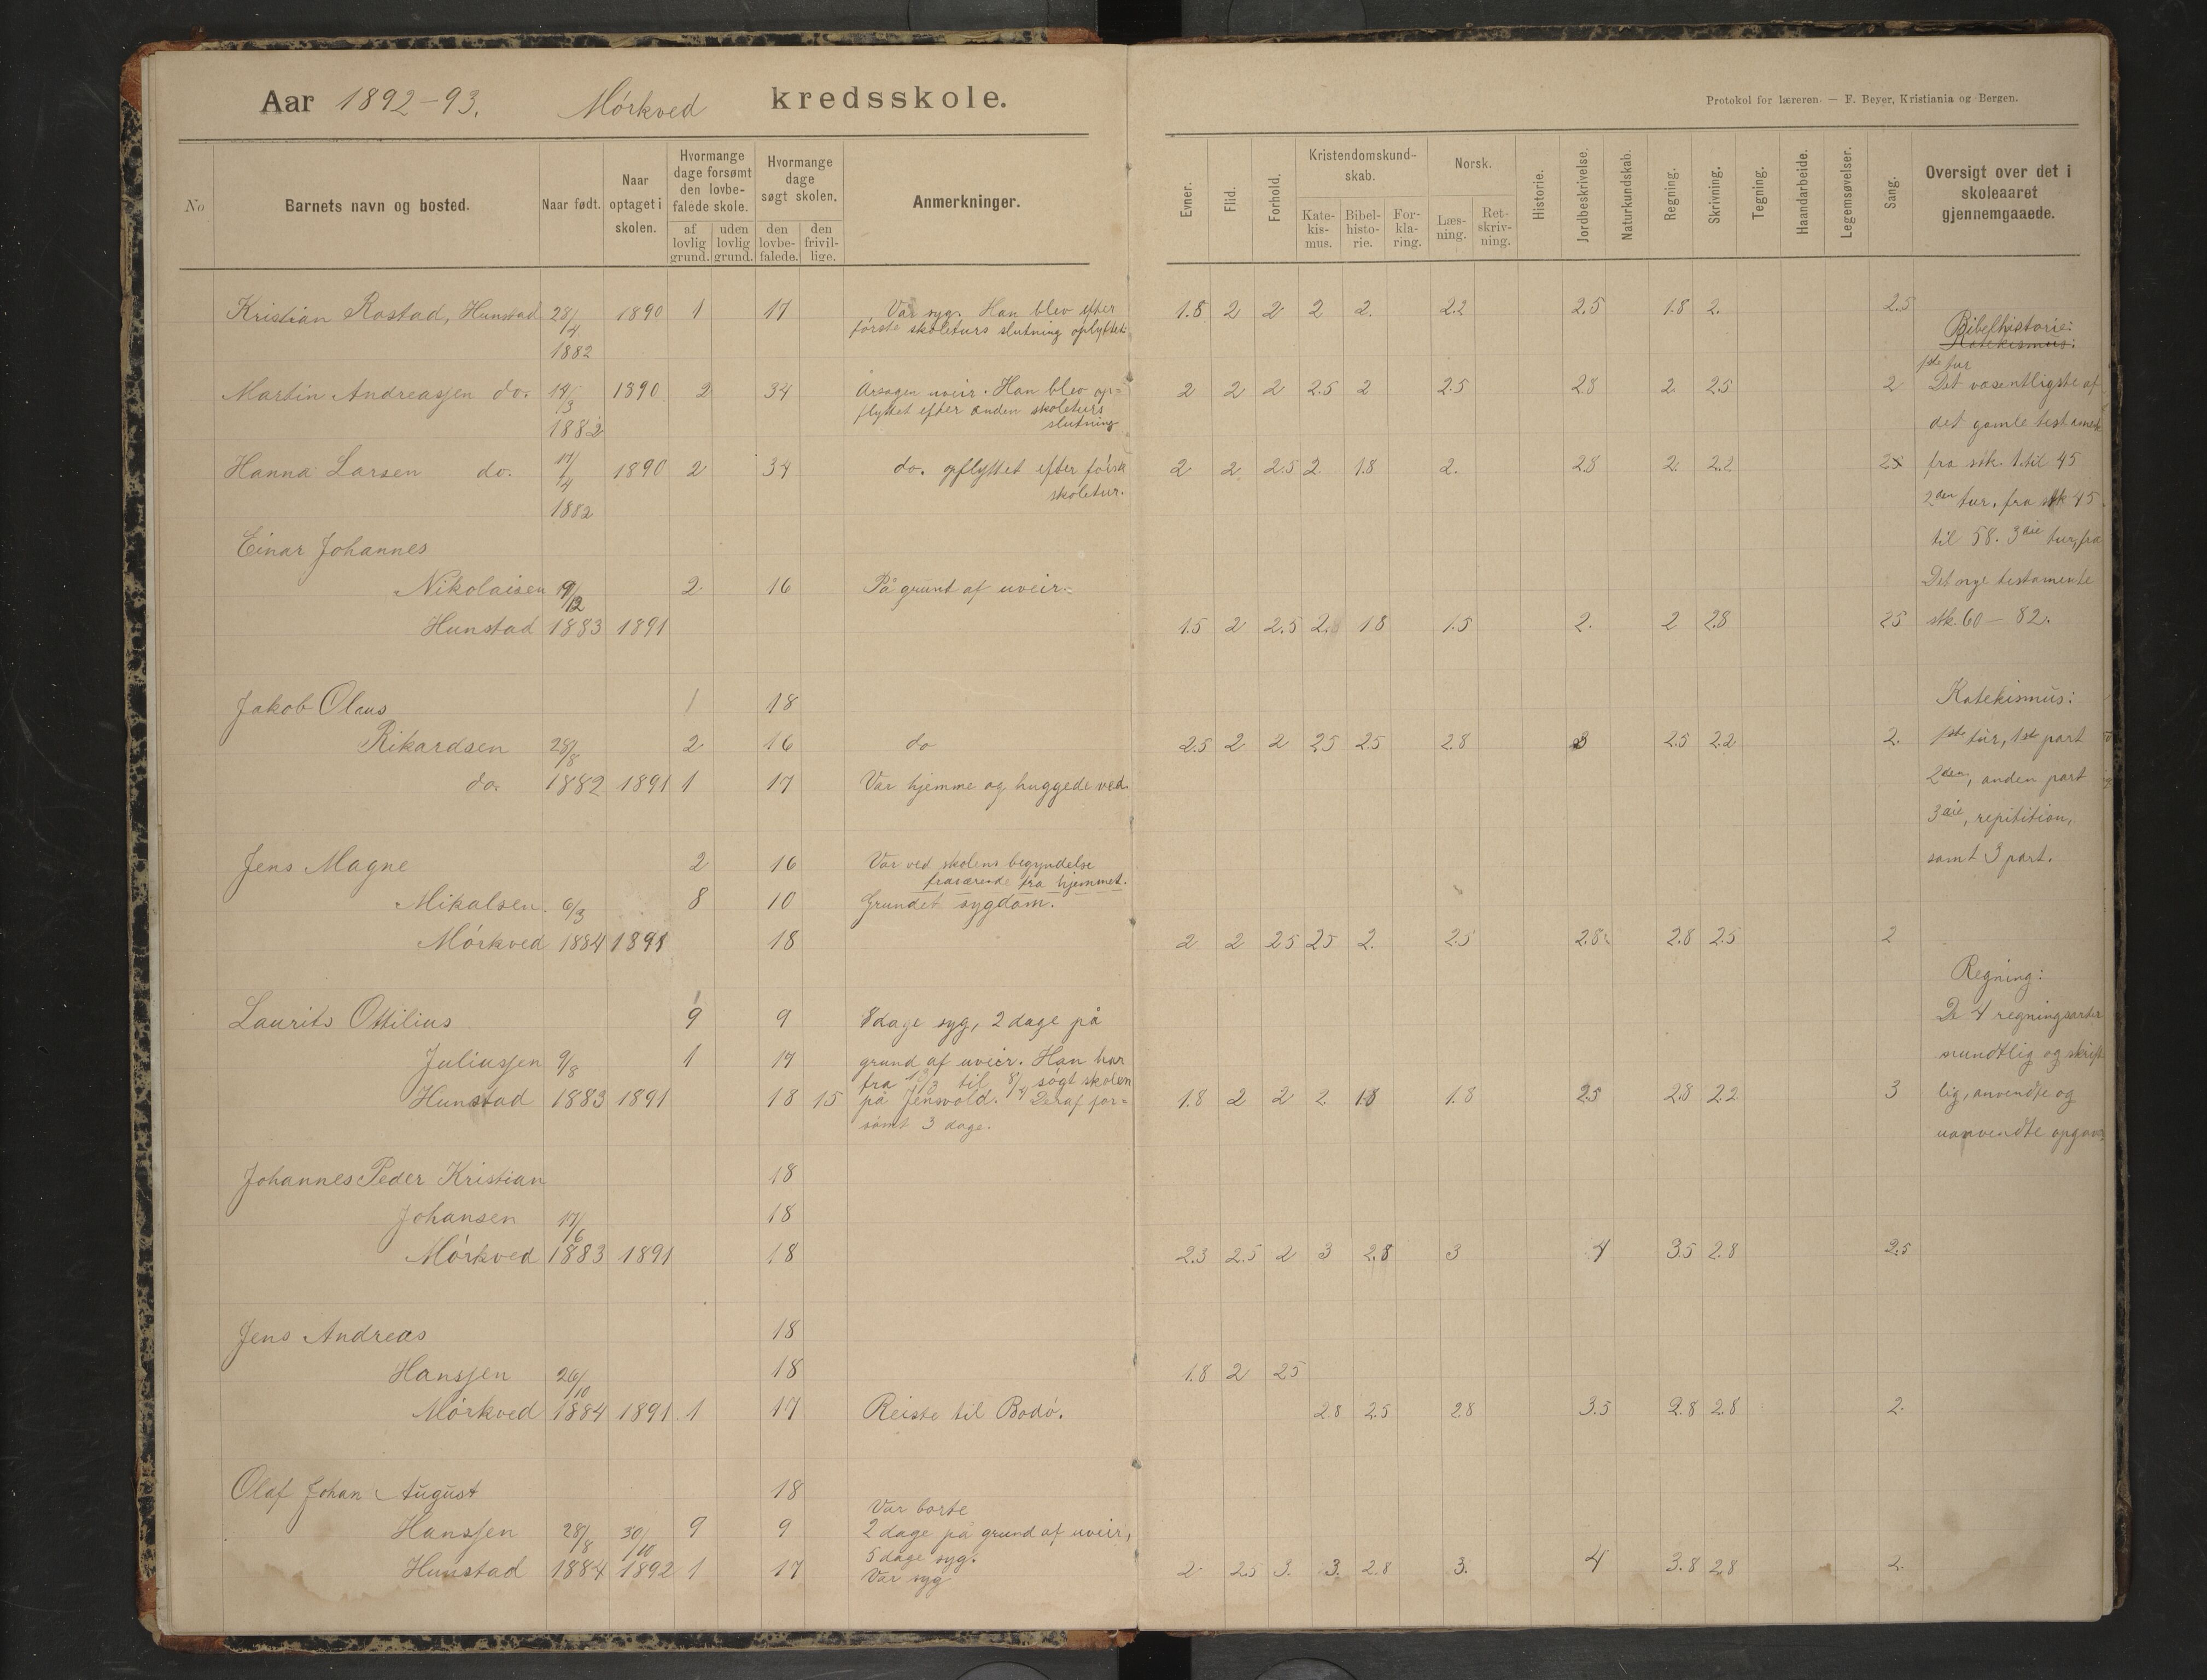 Aar 1892-93. Mórkved kredsskole.
Protokol for læreren. — F. Beyer, Kristiania og Bergen.
No
Barnets navn og bosted.
Naar født.
Naar optaget i skolen.
Hvormange dage forsømt den lovbefalede skole.
af lovlig grund.
uden lovlig grund.
Hvormange dage søgt skolen.
den lovbefalede.
den frivillige.
Anmerkninger.
Evner.
Flid.
Forhold.
Kristendomskundskab.
Katekismus.
Bibelhistorie.
Forklaring.
Norsk.
Læsning.
Retskrivning.
Historie.
Jordbeskrivelse.
Naturkundskab.
Regning.
Skrivning.
Tegning.
Haandarbeide.
Legemsøvelser.
Sang.
Oversigt over det i skoleaaret gjennemgaaede.
Kristian Rostad, Hunstad 28/4 1882 1890 1 17 Var syg. Han blev efter
første skoleturs slutning opflyttet.
1.8 2 2 2 2. 2.2 2.5 1.8 2. 2.5
Martin Andreassen do. 14/3 1882 1890 2 34 Årsagen uveir. Han blev op=
flyttet efter anden skoleturs
slutning
2 2 2 2.5 2 2.5 2.8 2. 2.5 2
Hanna Larsen do. 17/4 1882 1890 2 34 do. opflyttet efter første
skoletur.
2 2 2.5 2 1.8 2. 2.8 2. 2.2 2.5
Einar Johannes
Nikolaisen 9/12 2 16 På grund af uveir.
Hunstad 1883 1891
1.5 2 2.5 2.8 1.8 1.5 2. 2 2.8 2.5
Jakob Olaus 1 18
Rikardsen 28/8 2 16 do
2.5 2 2 2.5 2.5 2.8 3 2.5 2.2 2.
do. 1882 1891 1 17 Var hjemme og huggede ved.
Jens Magne 2 16 Var ved skolens begyndelse
fraværende fra hjemmet.
Mikalsen. 6/3 8 10 Grundet sygdom.
Mórkved 1884 1891 18
2 2 2.5 2.5 2. 2.5 2.8 2.8 2.5 2
Laurits Ottilius 9 9 8 dage syg, 2 dage på
Juliussen 9/8 1 17 grund af uveir. Han har
fra 13/3 til 8/4 søgt skolen
Hunstad 1883 1891 18 15 på Jensvold. Deraf for=
sømt 3 dage.
1.8 2 2 2 1.8 1.8 2.5 2.8 2.2 3
Johannes Peder Kristian 18
Johansen 17/6 18
Mórkved 1883 1891 18
2.3 2.5 2 3 2.8 3 4 3.5 2.8 2.5
Jens Andreas 18
Hanssen 26/10 18
1.8 2 2.5
Mórkved 1884 1891 1 17 Reiste til Bodó.
2.8 2.5 2.8 3.5 2.8 2.8 2.
Olaf Johan August 18
Var borte
Hanssen 28/8 30/10 9 9 2 dage på grund af uveir,
5 dage syg.
Hunstad 1884 1892 1 17 Var syg
2 2.5 3. 3. 2.8 3. 4 3.8 2.8 2.
Bibelhistorie:
Katekismus:
1ste tur
Det væsentligste af
det gamle testamente
fra stk. 1. til 45
2den tur, fra stk 45
til 58. 3die tur, fra
Det nye testamente
stk. 60 – 82.
Katekismus:
1ste tur, 1ste part
2den, anden part
3die, repitition,
samt 3 part.
Regning:
De 4 regningsarter
mundtlig og skrift
lig, anvendte og
uanvendte opgaver